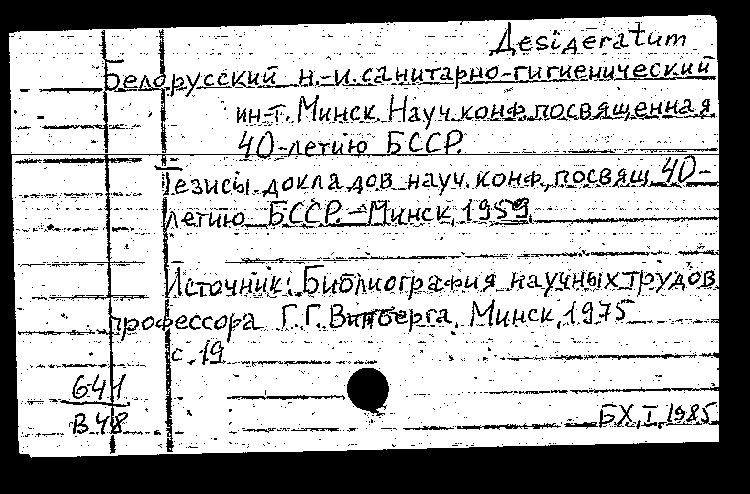 Desideratum
Белорусский н.-и. санитарно-гигиенический
ин-т. Минск. Науч. конф. посвященная
40-летию БССР.
Тезисы докладов науч. конф., посвящ. 40-
летию БССР. – Минск, 1959.
Источник: Библиография научных трудов
профессора Г.Г. Винберга, Минск, 1975
с. 19
641
В 48
БХ, I, 1985